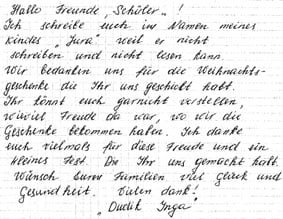 Hallo Freunde, „Schüler"!
Ich schreibe euch im Namen meines
Kindes „Jura" weil er nicht
schreiben und nicht lesen kann.
Wir bedanken uns für die Weihnachts-
geschenke die Ihr uns geschickt habt.
Ihr könnt euch garnicht vorstellen,
wieviel Freude da war, wo wir die
Geschenke bekommen haben. Ich danke
euch vielmals für diese Freude und ein
kleines Fest. Die Ihr uns gemacht habt.
Wünsch Euren Familien viel Glück und
Gesundheit. Vielen dank!
„Dudik Inga"